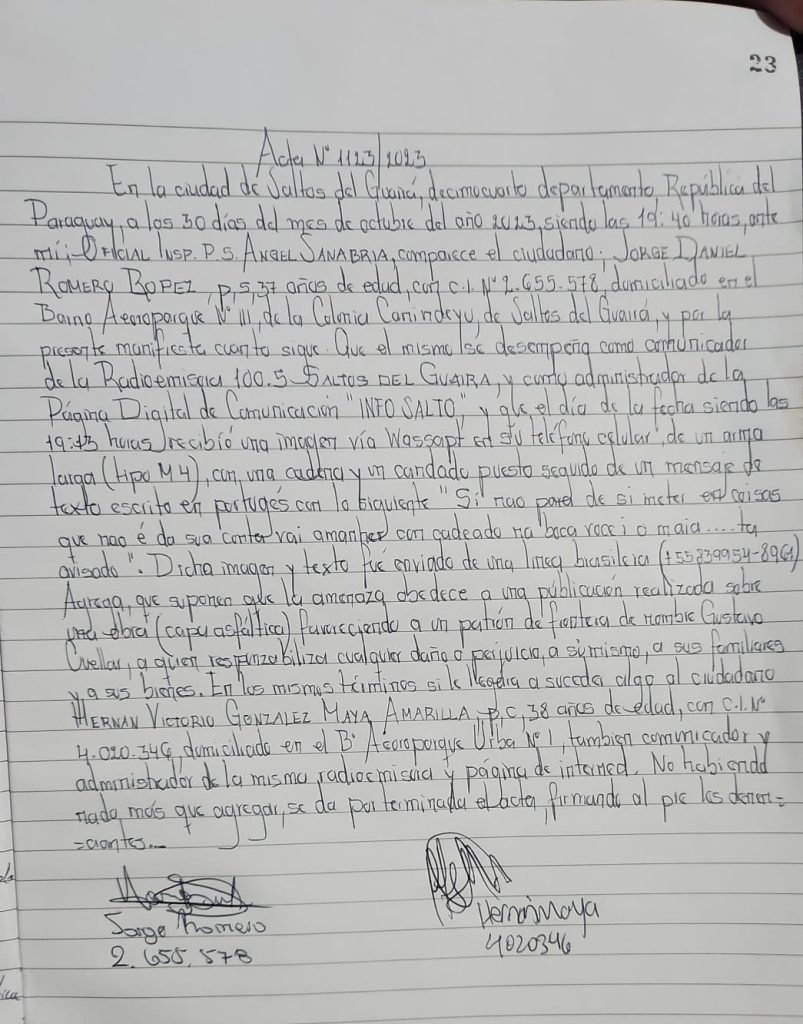 23
Acta Nº 1123/2023
En la ciudad de Saltos del Guairá, decimocuarto departamento República del
Paraguay, a los 30 días del mes de octubre del año 2023, siendo las 19:40 horas, ante
mí; OFICIAL INSP. P.S. ANGEL SANABRIA, comparece el ciudadano; JORGE DANIEL
ROMERO BOPEZ, p,s,37 años de edad, con c.i. Nº 2.655.578, domiciliado en el
Barrio Aeroparque Nº III, de la Colonia Canindeyu, de Saltos del Guairá, y por la
presente manifiesta cuanto sigue. Que el mismo se desempeña como comunicador
de la Radioemisora 100.5 SALTOS DEL GUAIRA, y como administrador de la
Página Digital de Comunicación "INFO SALTO", y que el día de la fecha siendo las
19:13 horas recibió una imagen vía Wassapt en su teléfono celular, de un arma
larga (tipo M4), con una cadena y un candado puesto seguido de un mensaje de
texto escrito en portugés con lo siguiente "Si nao parel de si meter en coisas
que nao é da sua conta vai amanher con cadeado na boca roce i o maia .... ta
avisado". Dicha imagen y texto fué enviado de una linea brasileia (+55839954-8961)
Agrega, que suponen que la amenaza obedece a una publicación realizada sobre
una obra (capa asfáltica) favoreciendo a un patrón de frontera de nombre Gustavo
Cuellar, a quien responzabiliza cualquier daño o perjuicio, a sí mismo, a sus familiares
y a sus bienes. En los mismos términos si le llegara a suceda algo al ciudadano
HERNAN VICTORIO GONZALEZ MAYA AMARILLA, p,c,38 años de edad, con C.I. Nº
4.020.346, domiciliado en el Bº Aeroparque Urba Nº 1, tambien comunicador y
administrador de la misma radioemisora y página de interned. No habiendo
nada más que agregar, se da por terminada el acta, firmando al pie los denun=
=ciantes...
Jorge Romero
2.655.578
Hernan Maya
4020346